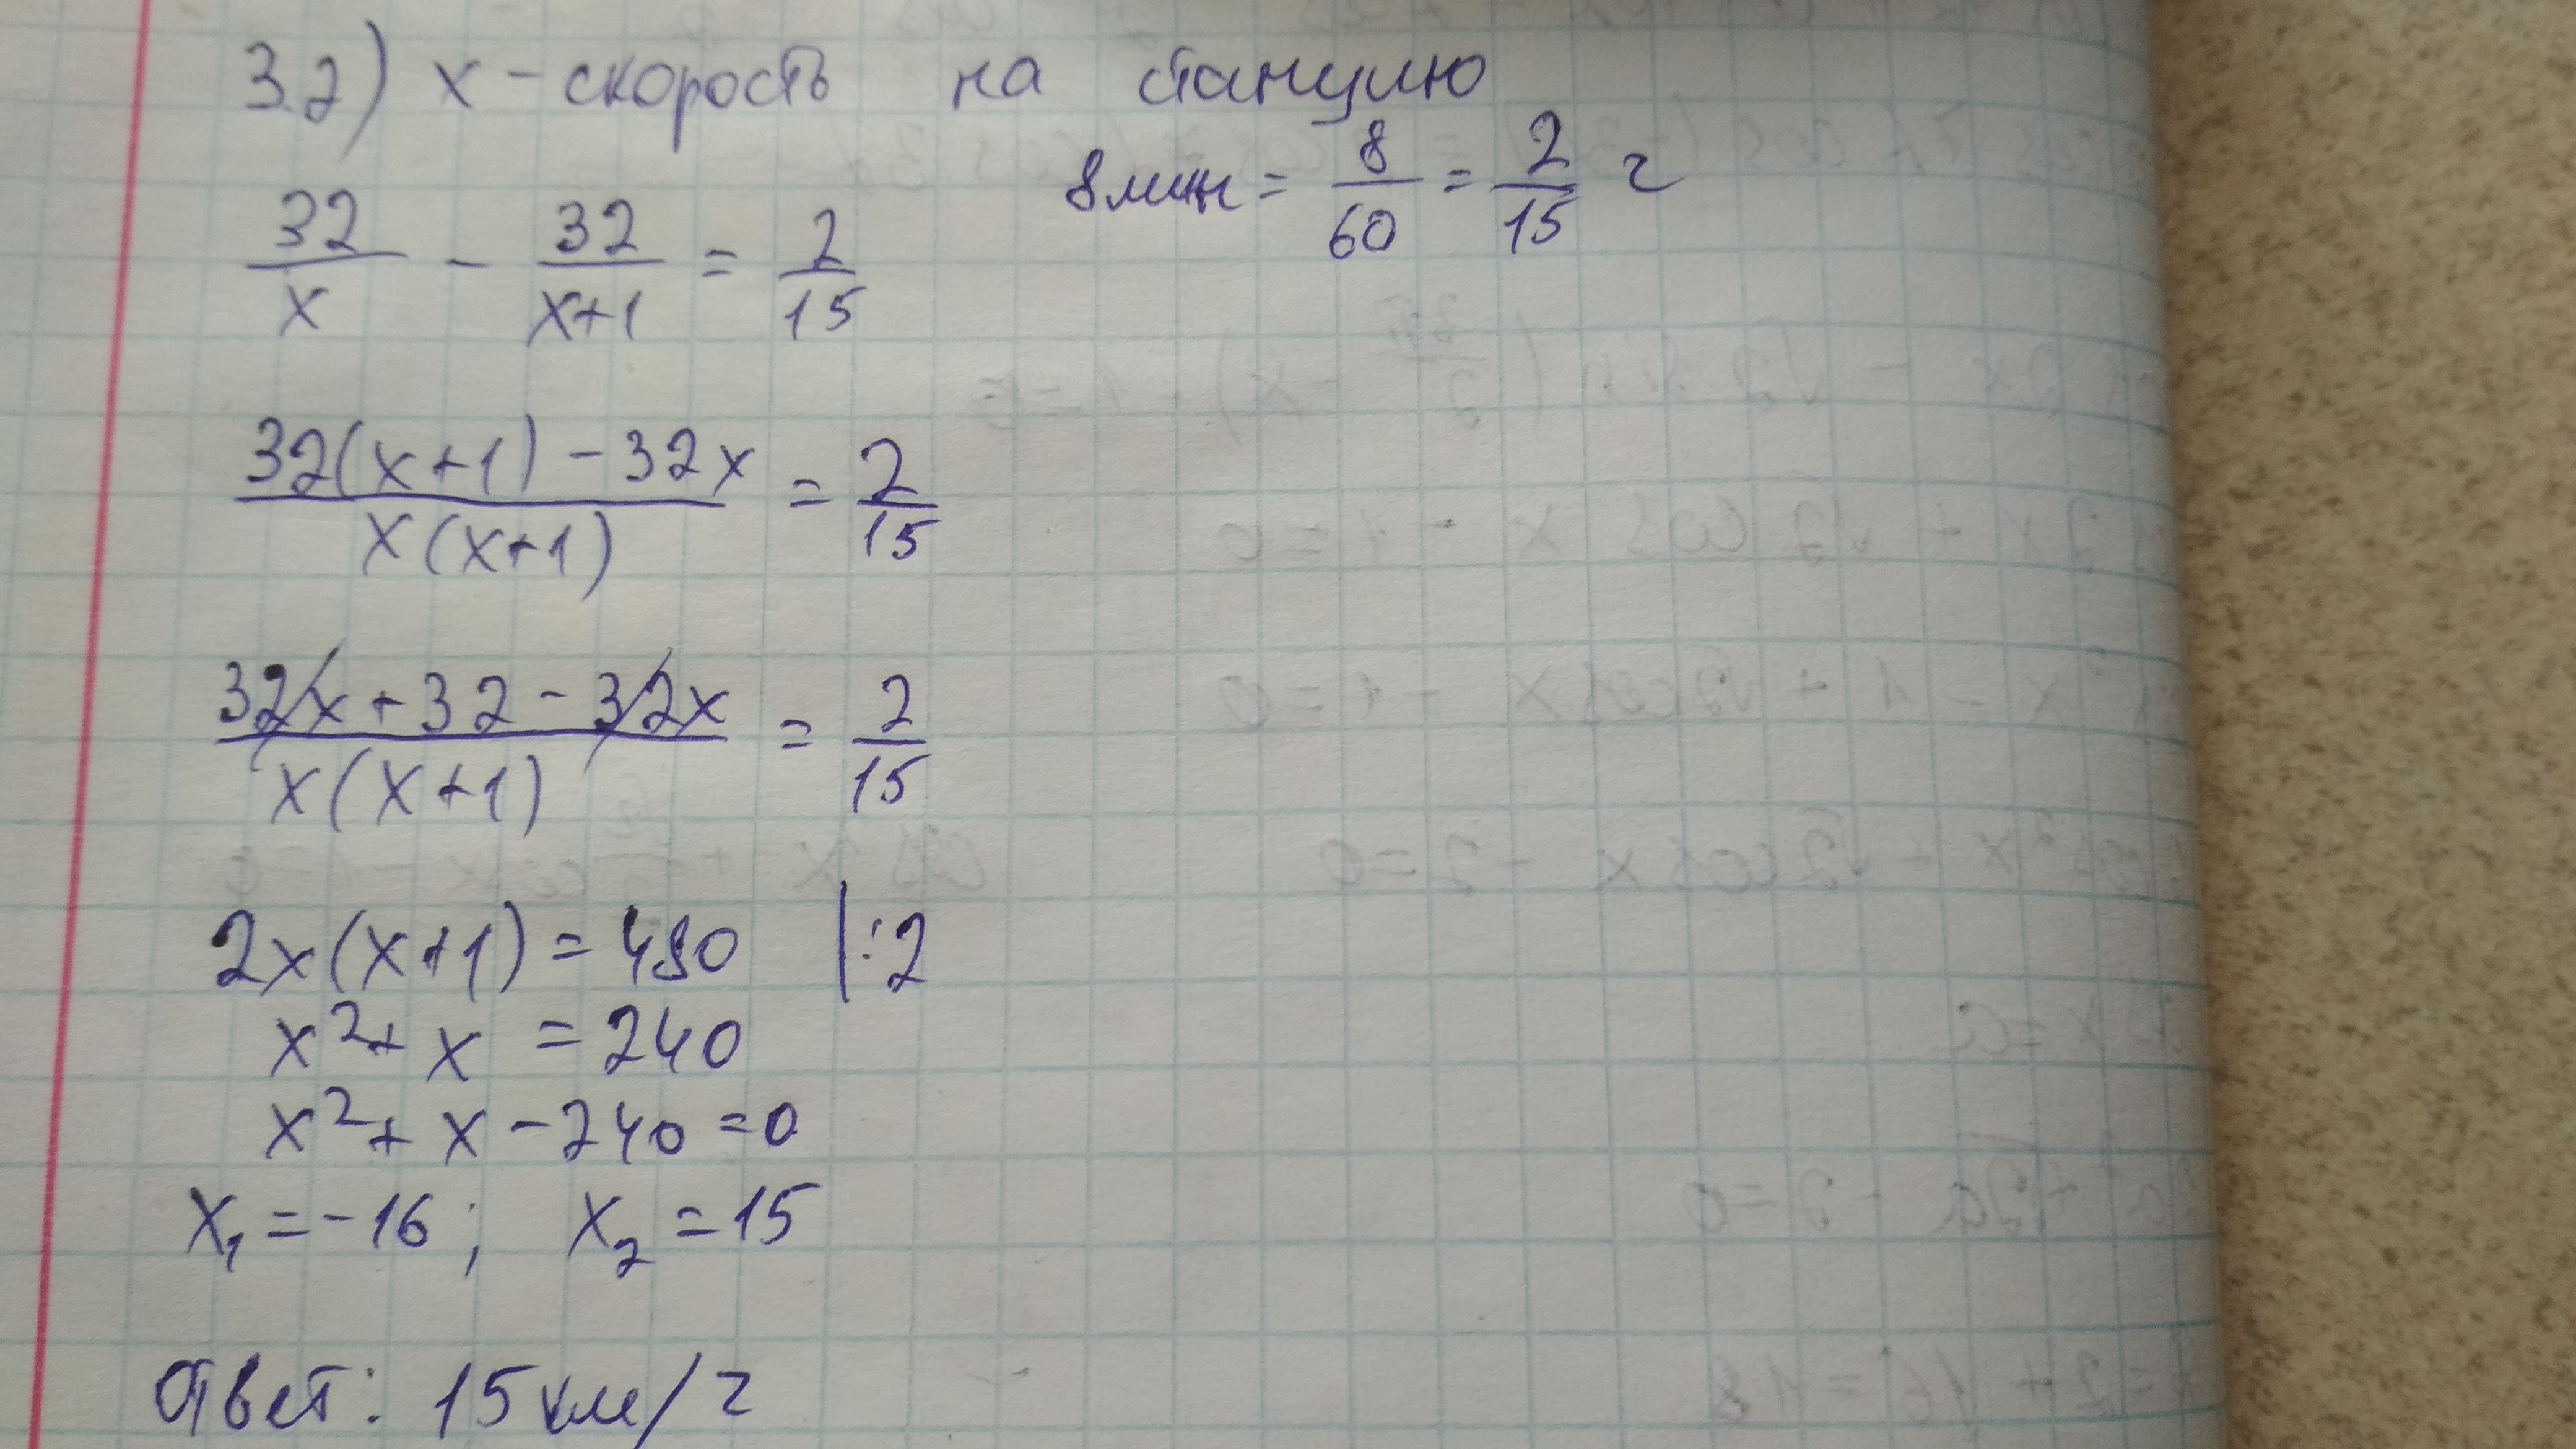 3.2) x - скорость на станцию
8 мин = 8/60 = 2/15 ч
32/x - 32/(x+1) = 2/15
(32(x+1) - 32x)/(x(x+1)) = 2/15
(32x + 32 - 32x)/(x(x+1)) = 2/15
2x(x+1) = 480 |:2
x² + x = 240
x² + x - 240 = 0
x₁ = -16; x₂ = 15
Ответ: 15 км/ч